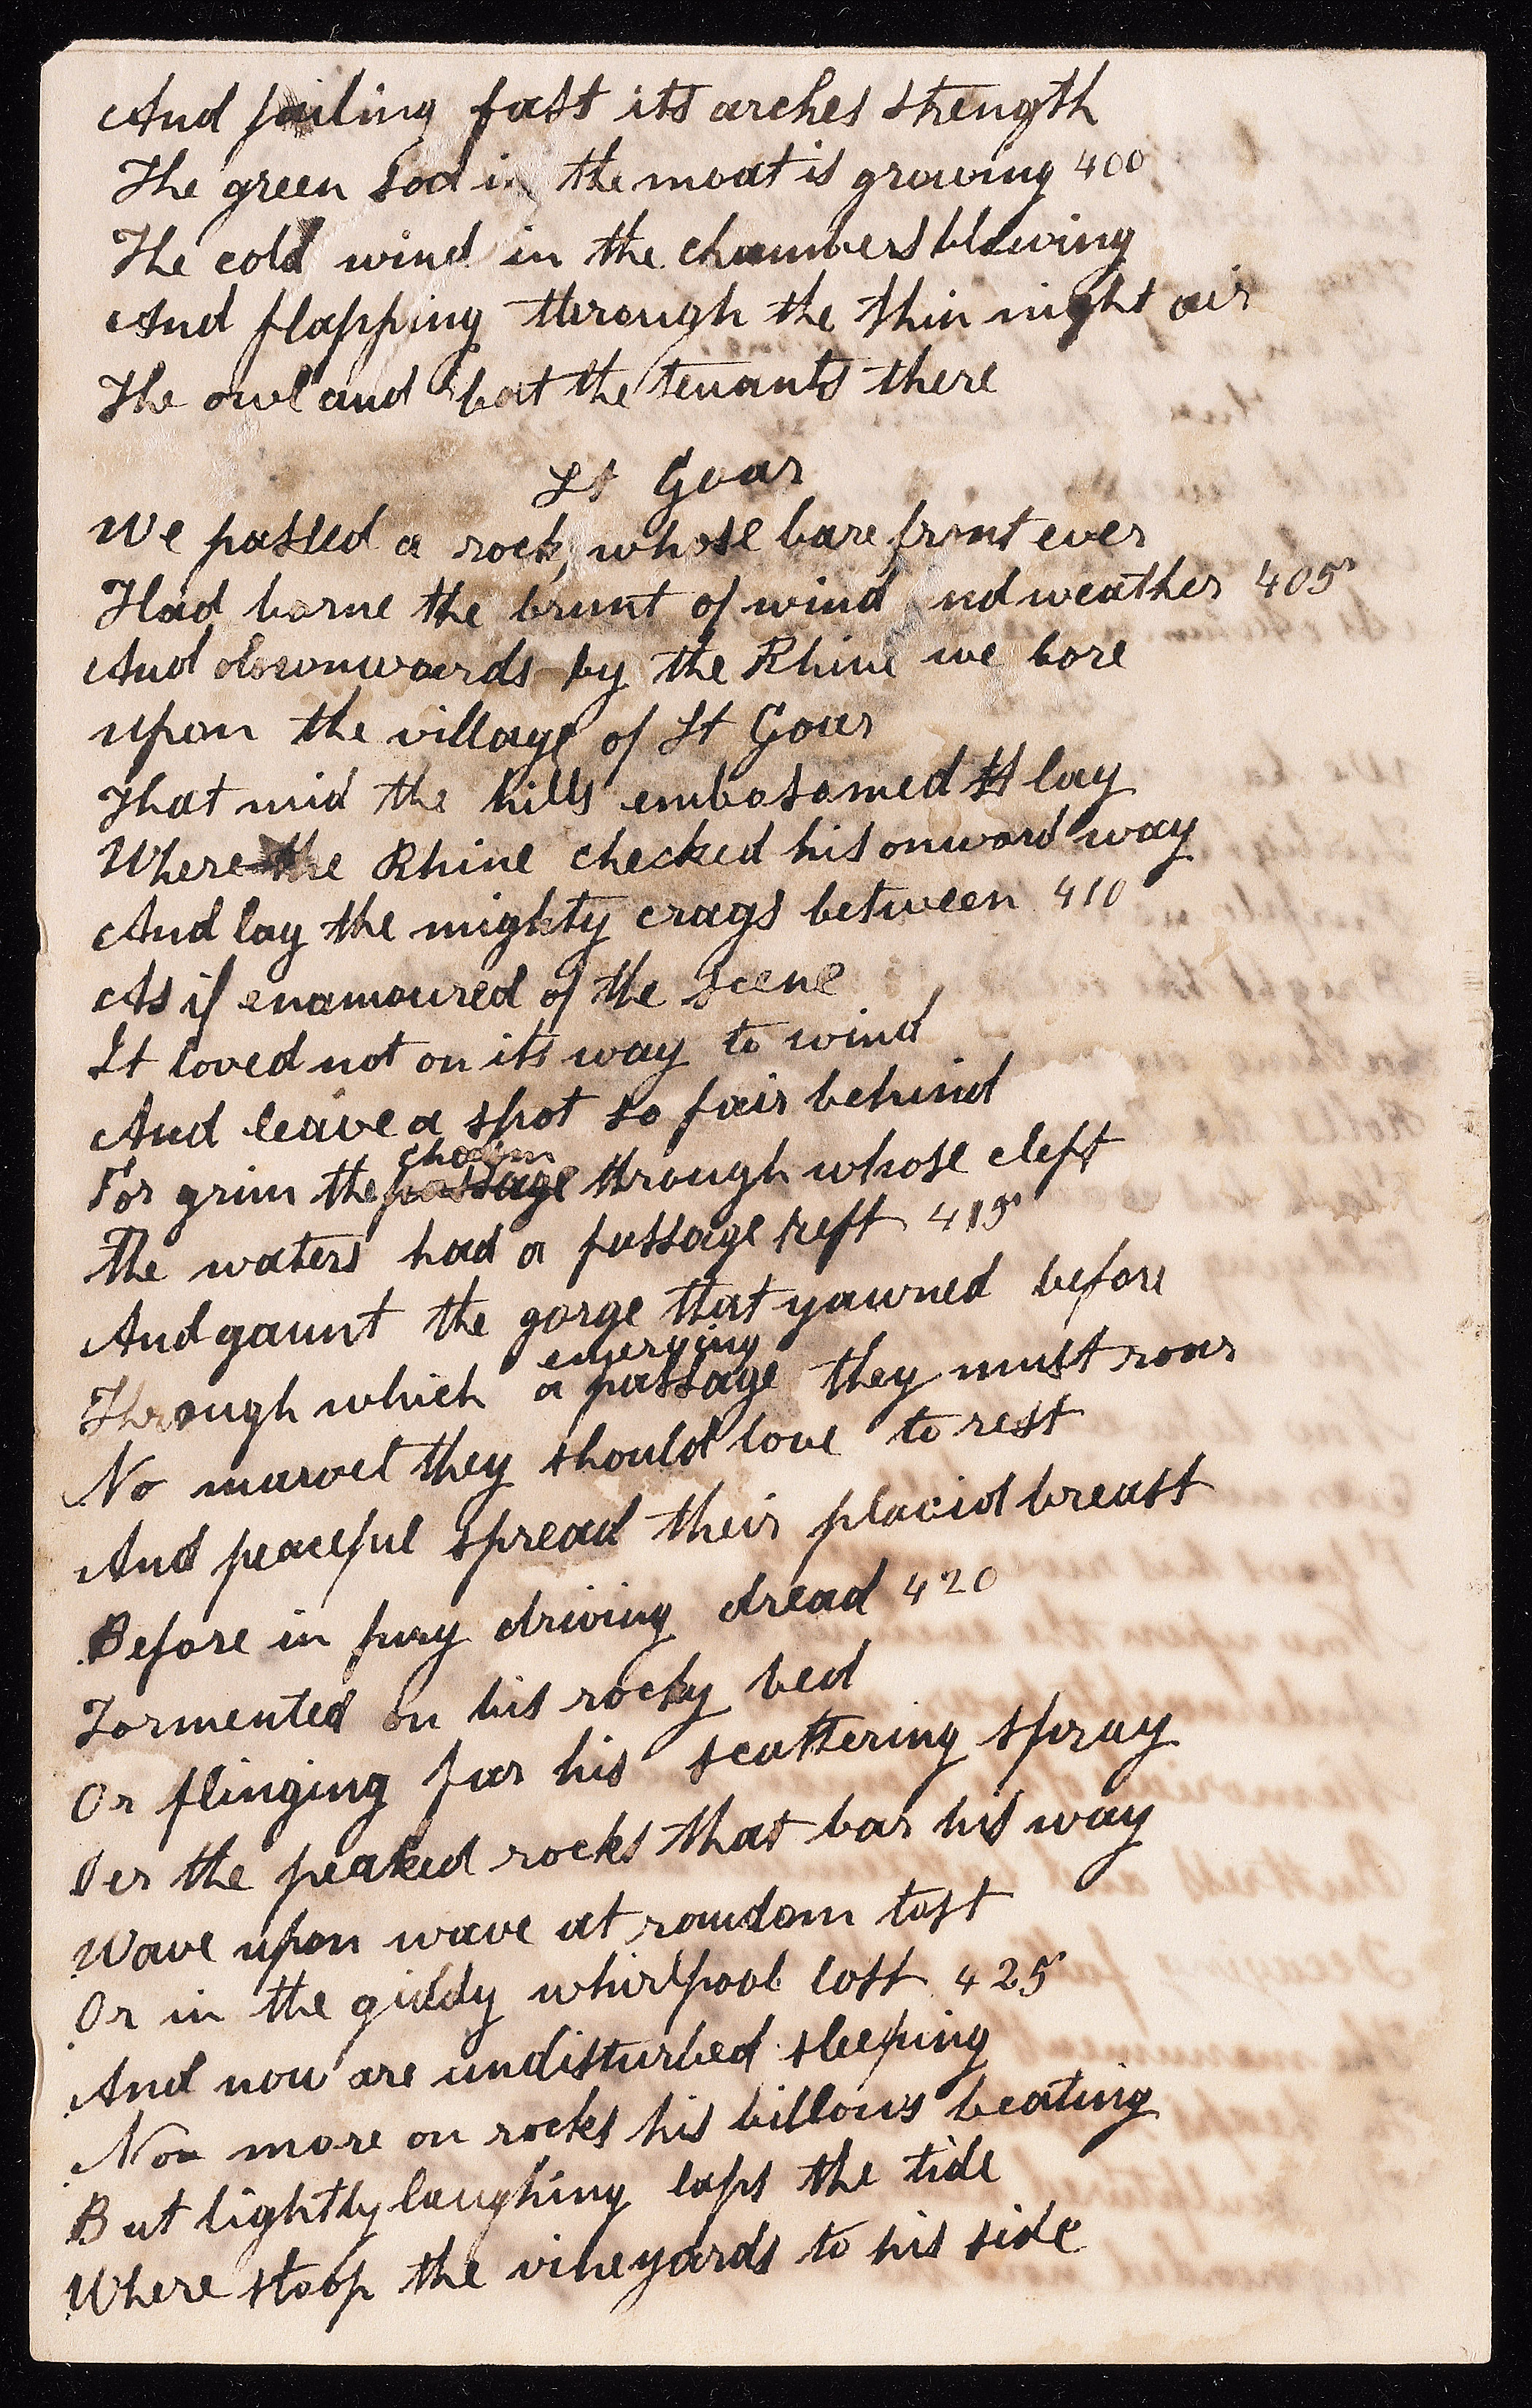 And failing fast its arches stength
The green sod in the moat is growing 400
The cold wind in the chambers blowing
And flapping through the thin night air
The owl and bat the tenants there
St Goar
We passed a rock, whose bare front ever
Had borne the brunt of wind and weather 405
And downwards by the Rhine we bore
upon the village of St Goar
That mid the hills embosomed lay
Where the Rhine checked his onward way
And lay the mighty crags between 410
As if enamoured of the scene
It loved not on its way to wind
And leave a spot so fair behind
chasm
For grim the passage through whose cleft
The waters had a passage reft 415
And gaunt the gorge that yawned before
emerging
Through which a passage they must roar
No marvel they should love to rest
And peaceful spread their placid breast
Before in fury driving dread 420
Tormented on his rocky bed
Or flinging far his scattering spray
Oer the peaked rocks that bar his way
Wave upon wave at random tost
Or in the giddy whirlpool lost 425
And now are undisturbed sleeping
No more on rocks his billows beating
But lightly laughing laps the tide
Where stoop the vineyards to his side